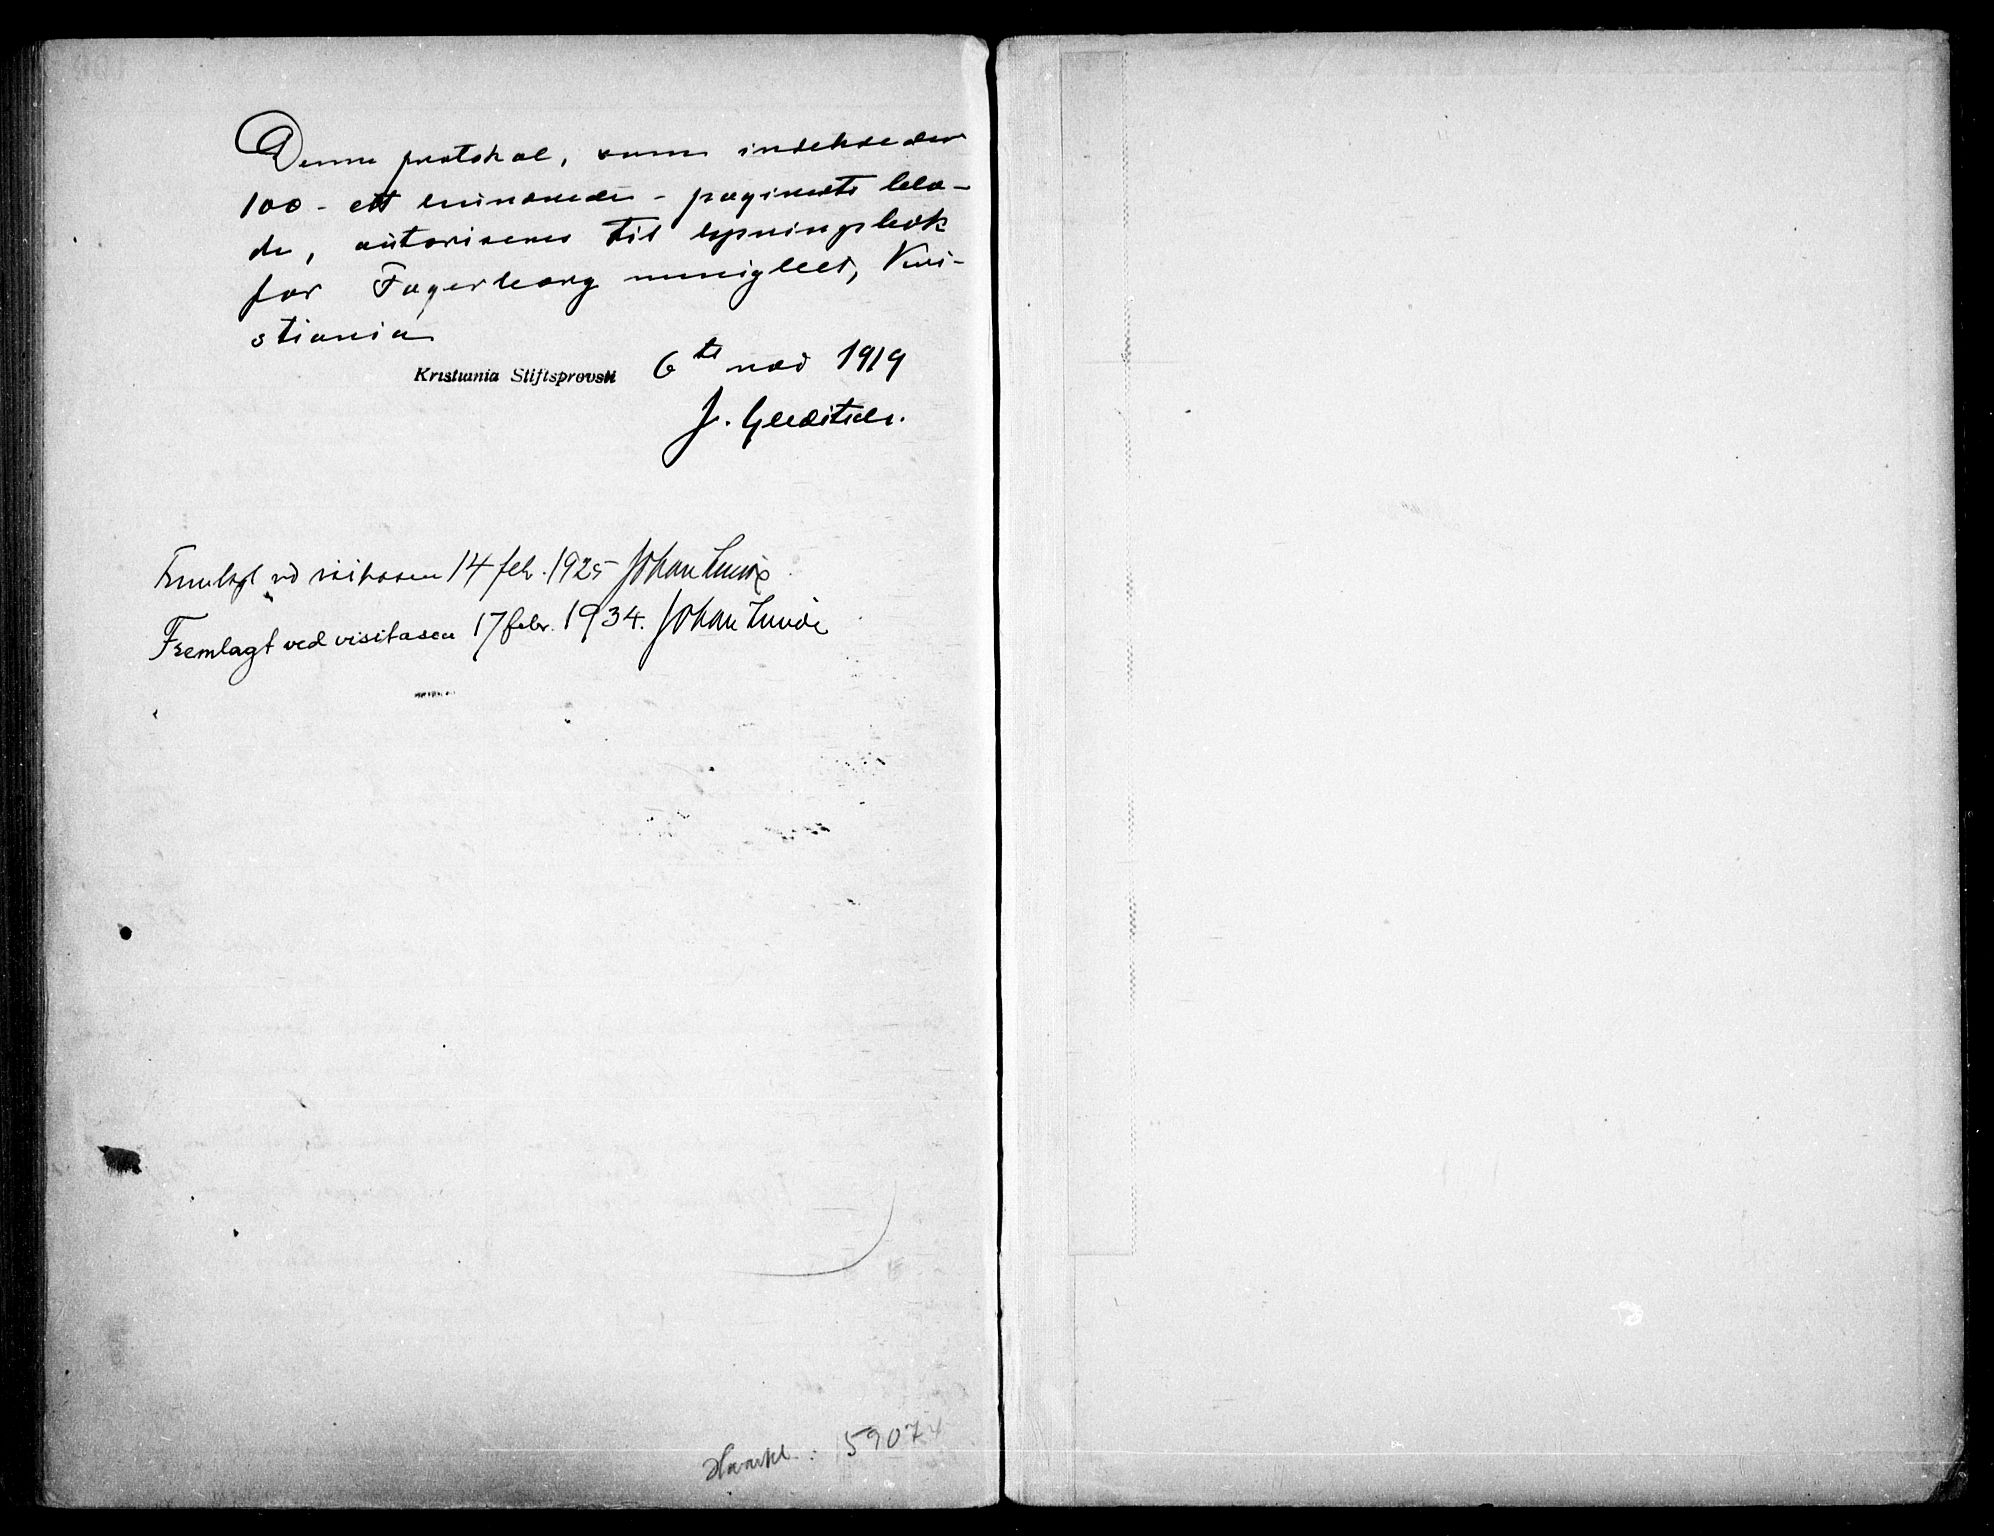 Denne protokol, som indeholder
100 - ett hundrede - paginerte bla-
de, autoriseres til lysningsbok
for Fagerborg menighet, Kri-
stiania
Kristiania Stiftsprovsti 6te nov 1919
J. Gleditsch.
Fremlagt ved visitasen 14 feb. 1925 Johan Lunde
Fremlagt ved visitasen 17 febr. 1934. Johan Lunde
59074